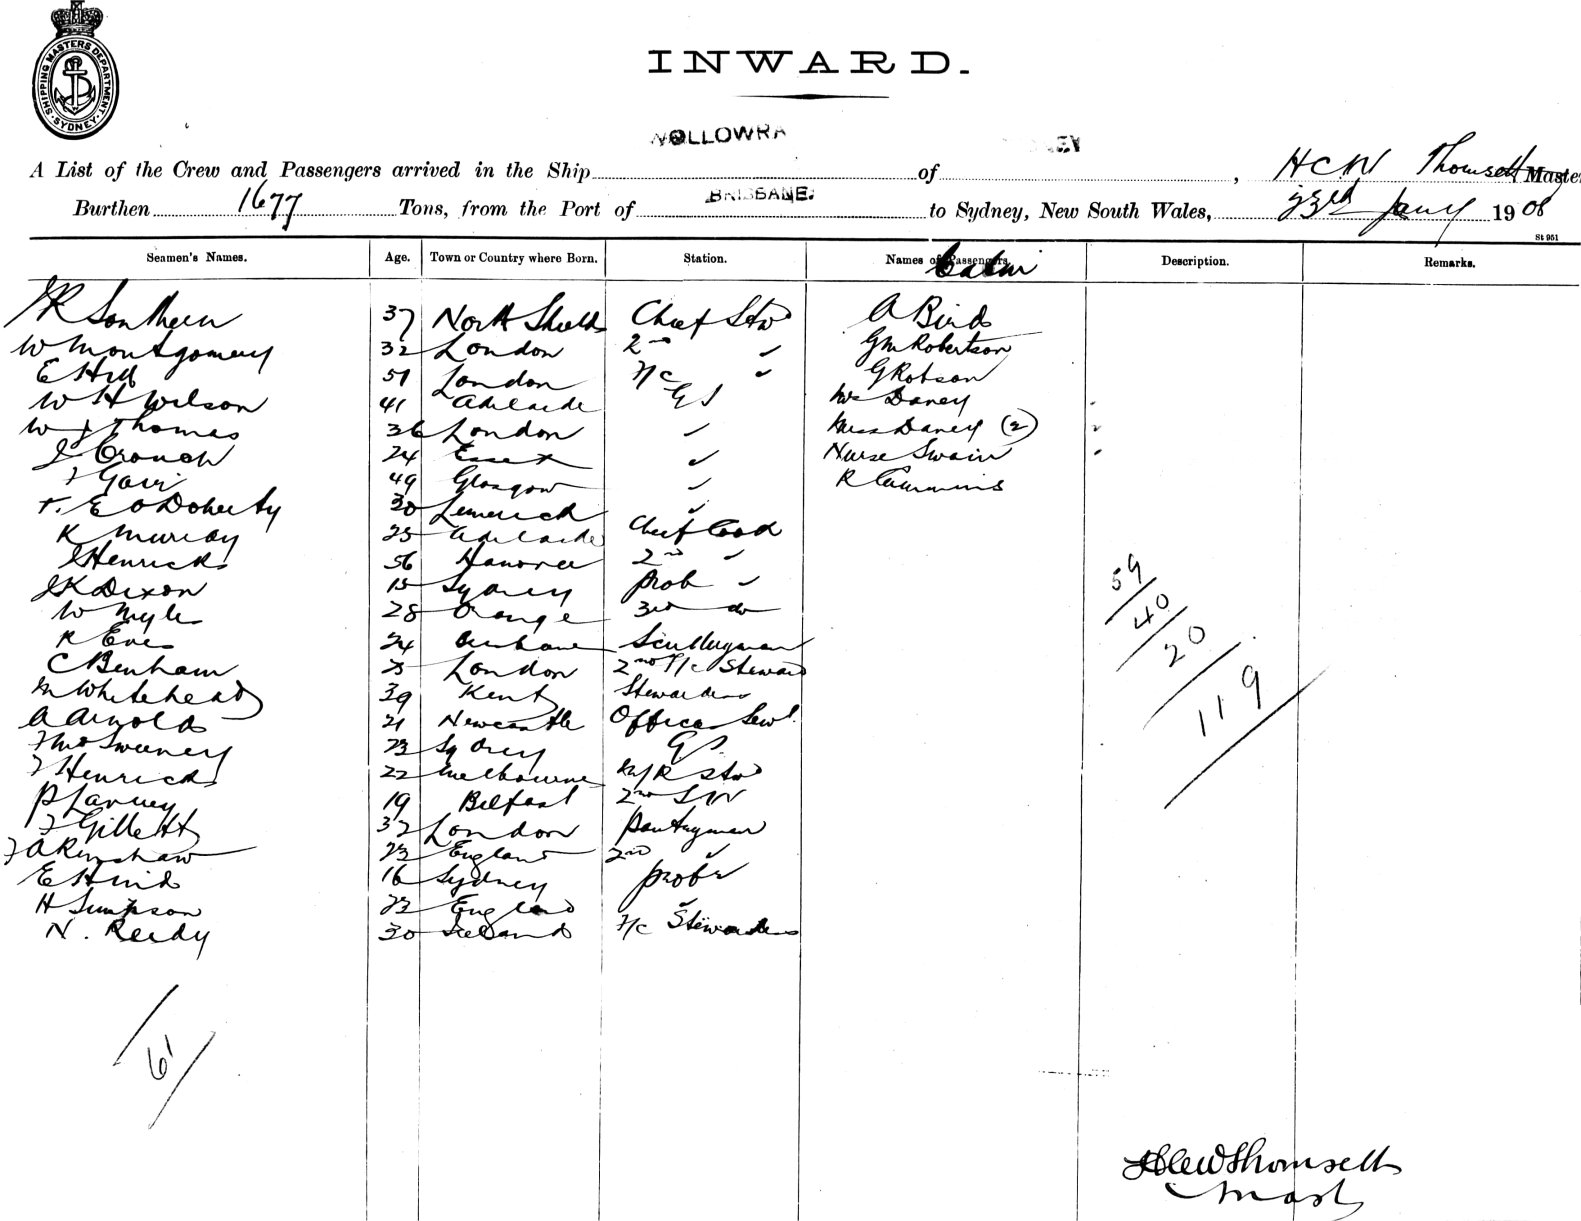 SHIPPING MASTERS DEPARTMENT.
SYDNEY
INWARD.
WOLLOWRA
A List of the Crew and Passengers arrived in the Ship of , H C W Thomsett Master
BRISBANE.
Burthen 1677 Tons, from the Port of to Sydney, New South Wales, 23rd Jany 1908
St 951
Seamen's Names. Age. Town or Country where Born. Station. Names of Passengers. Description. Remarks.
Cabin
J R Southern 37 North Shields Chief Stwd A Bird
W Montgomery 32 London 2nd ✓ G M Robertson
E Hill 51 London F/c ✓ G Robson
W H Wilson 41 Adelaide G S Mrs Daney
W J Thomas 36 London ✓ Miss Daney (2)
J Crouch 24 Essex ✓ Nurse Swain
J Gair 49 Glasgow ✓ R Cummins
T. E O'Doherty 30 Limerick ✓
K Murray 25 Adelaide Chief Cook
J Henricks 56 Hanover 2nd ✓
J K Dixon 15 Sydney Prob ✓
W Nyle 28 Orange 3rd do
R Eves 24 Scullyman
C Benham 25 London 2nd F/c Steward
M Whitehead 39 Kent Stewardess
A Arnold 21 Newcastle Officers Servt.
McSweeney 23 Sydney G S
F Henricks 22 Melbourne M/R Stwd
P Larvey 19 Belfast 2nd
F Gillett 32 London Pantryman
F A Renshaw 23 England 2nd ✓
E Hind 16 Sydney Prob ✓
H Simpson 23 England ✓
N. Reidy 30 Ireland F/c Stewardess
59
40
20
119
61
H C W Thomsett
Master